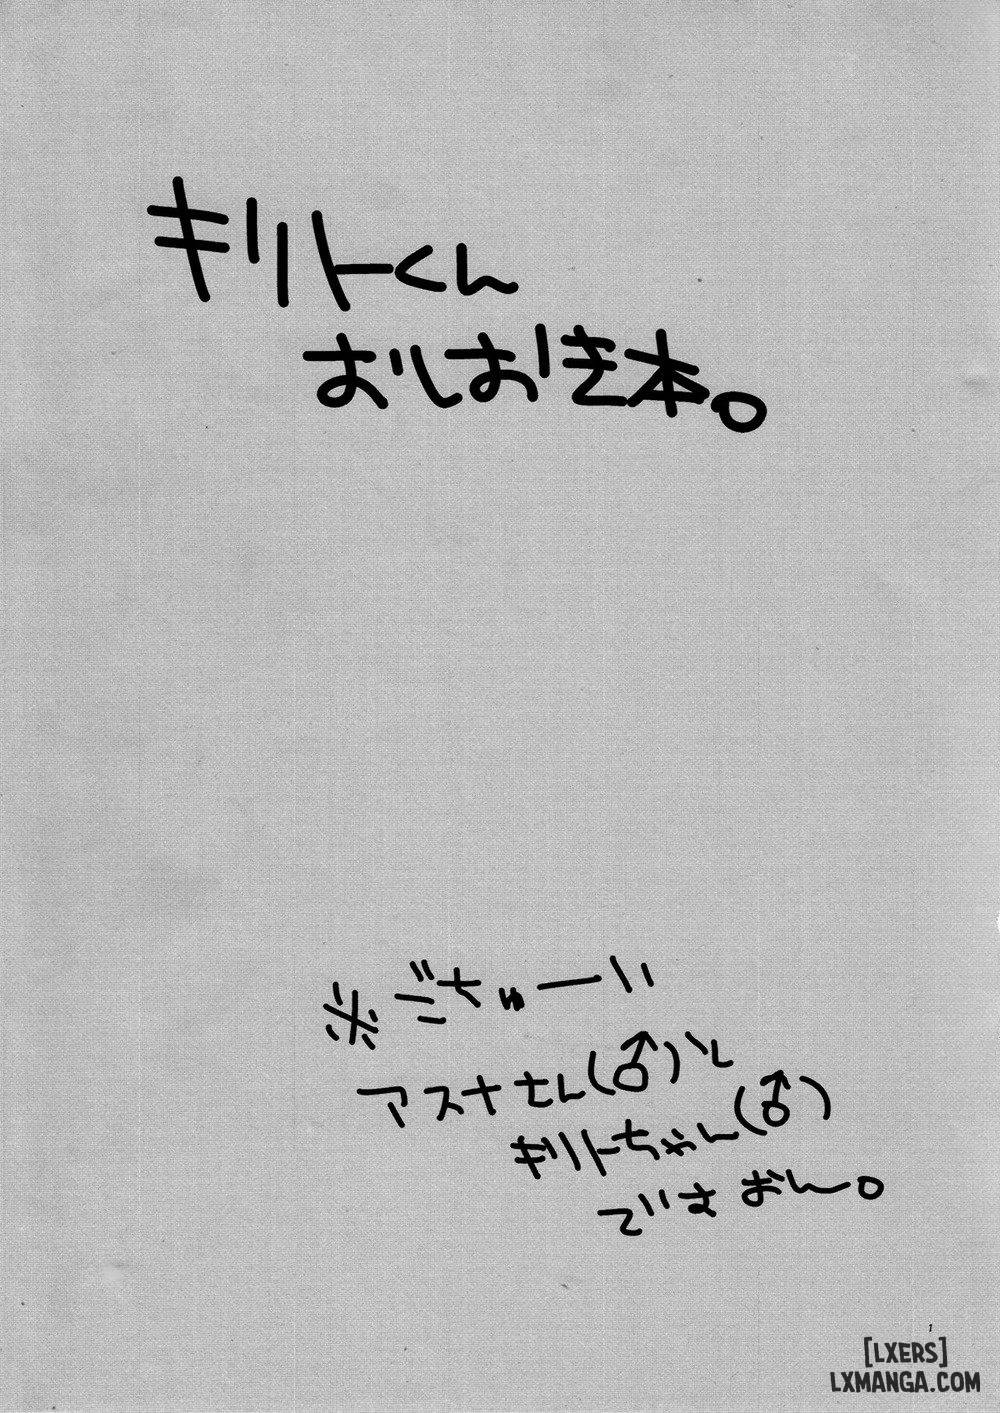 キリトくん
おしおき本。
※ごちゅーい
アスナさん(♂)と
キリトちゃん(♂)
でさおん。
1
[LXERS]
LXMANGA.COM